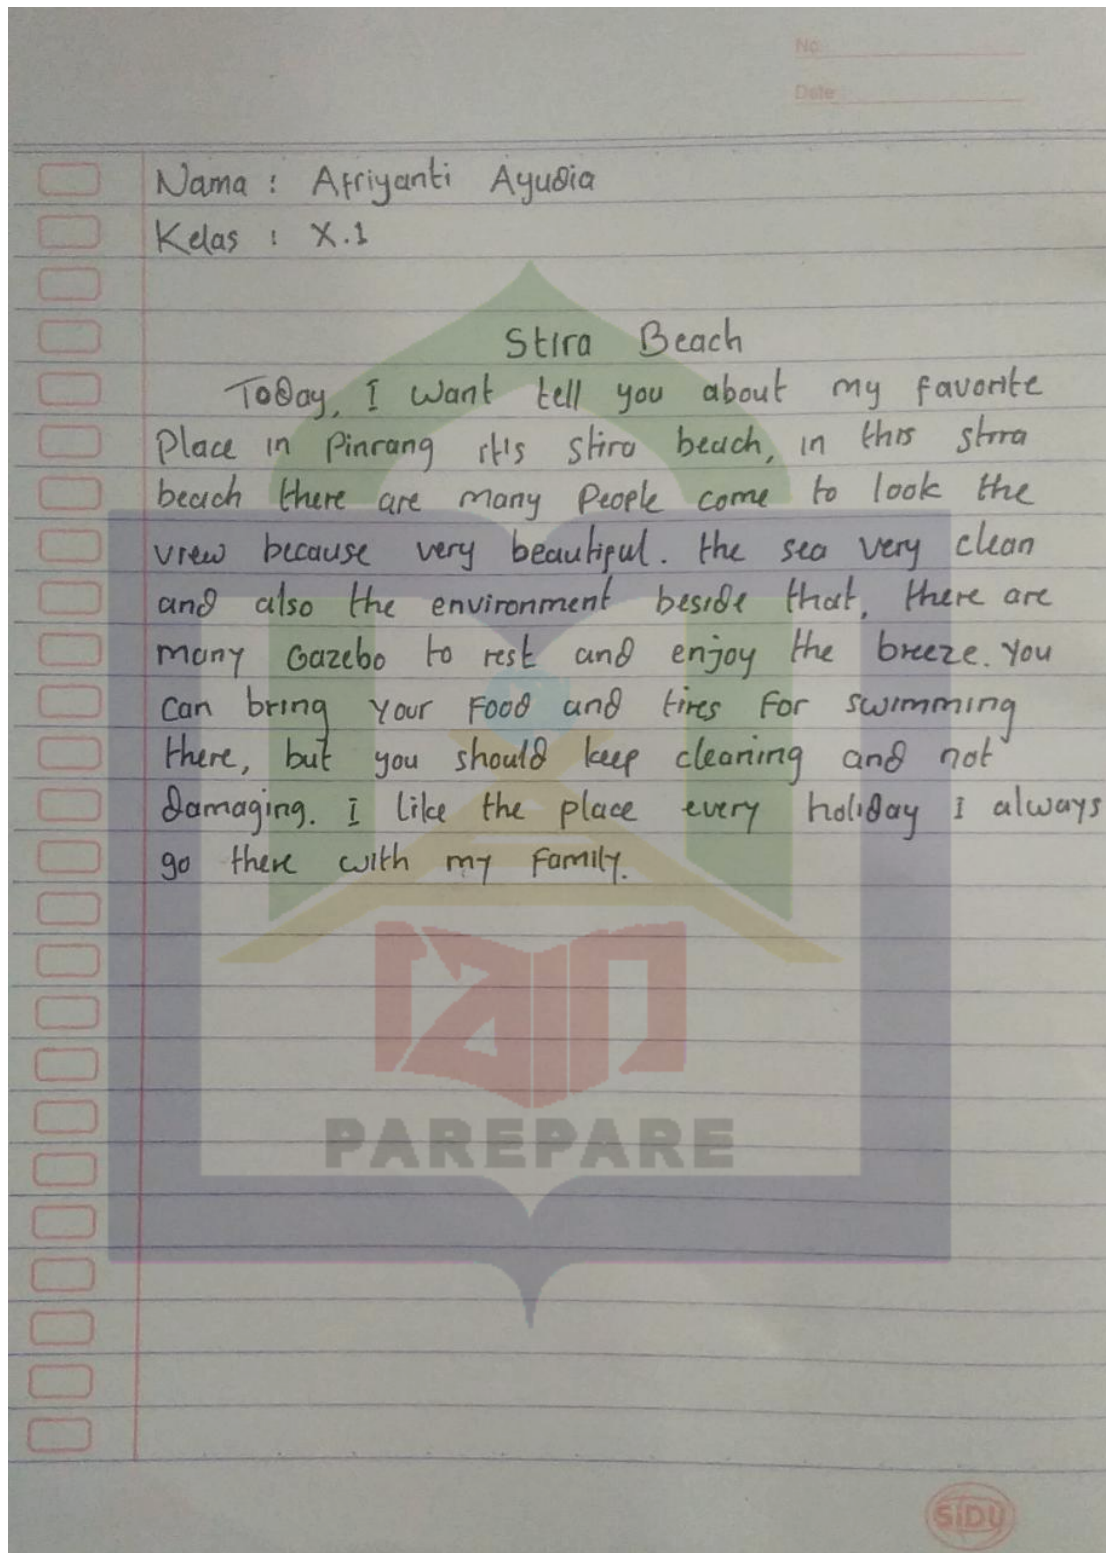 No :
Date :
Nama : Afriyanti Ayudia
Kelas : X.1
Stira Beach
Today, I want tell you about my favorite
Place in Pinrang it's stira beach, in this stira
beach there are many People come to look the
view because very beautiful. the sea very clean
and also the environment beside that, there are
many Gazebo to rest and enjoy the breeze. You
can bring your Food and tires For swimming
there, but you should keep cleaning and not
damaging. I like the place every holiday I always
go there with my Family.
PAREPARE
SIDU